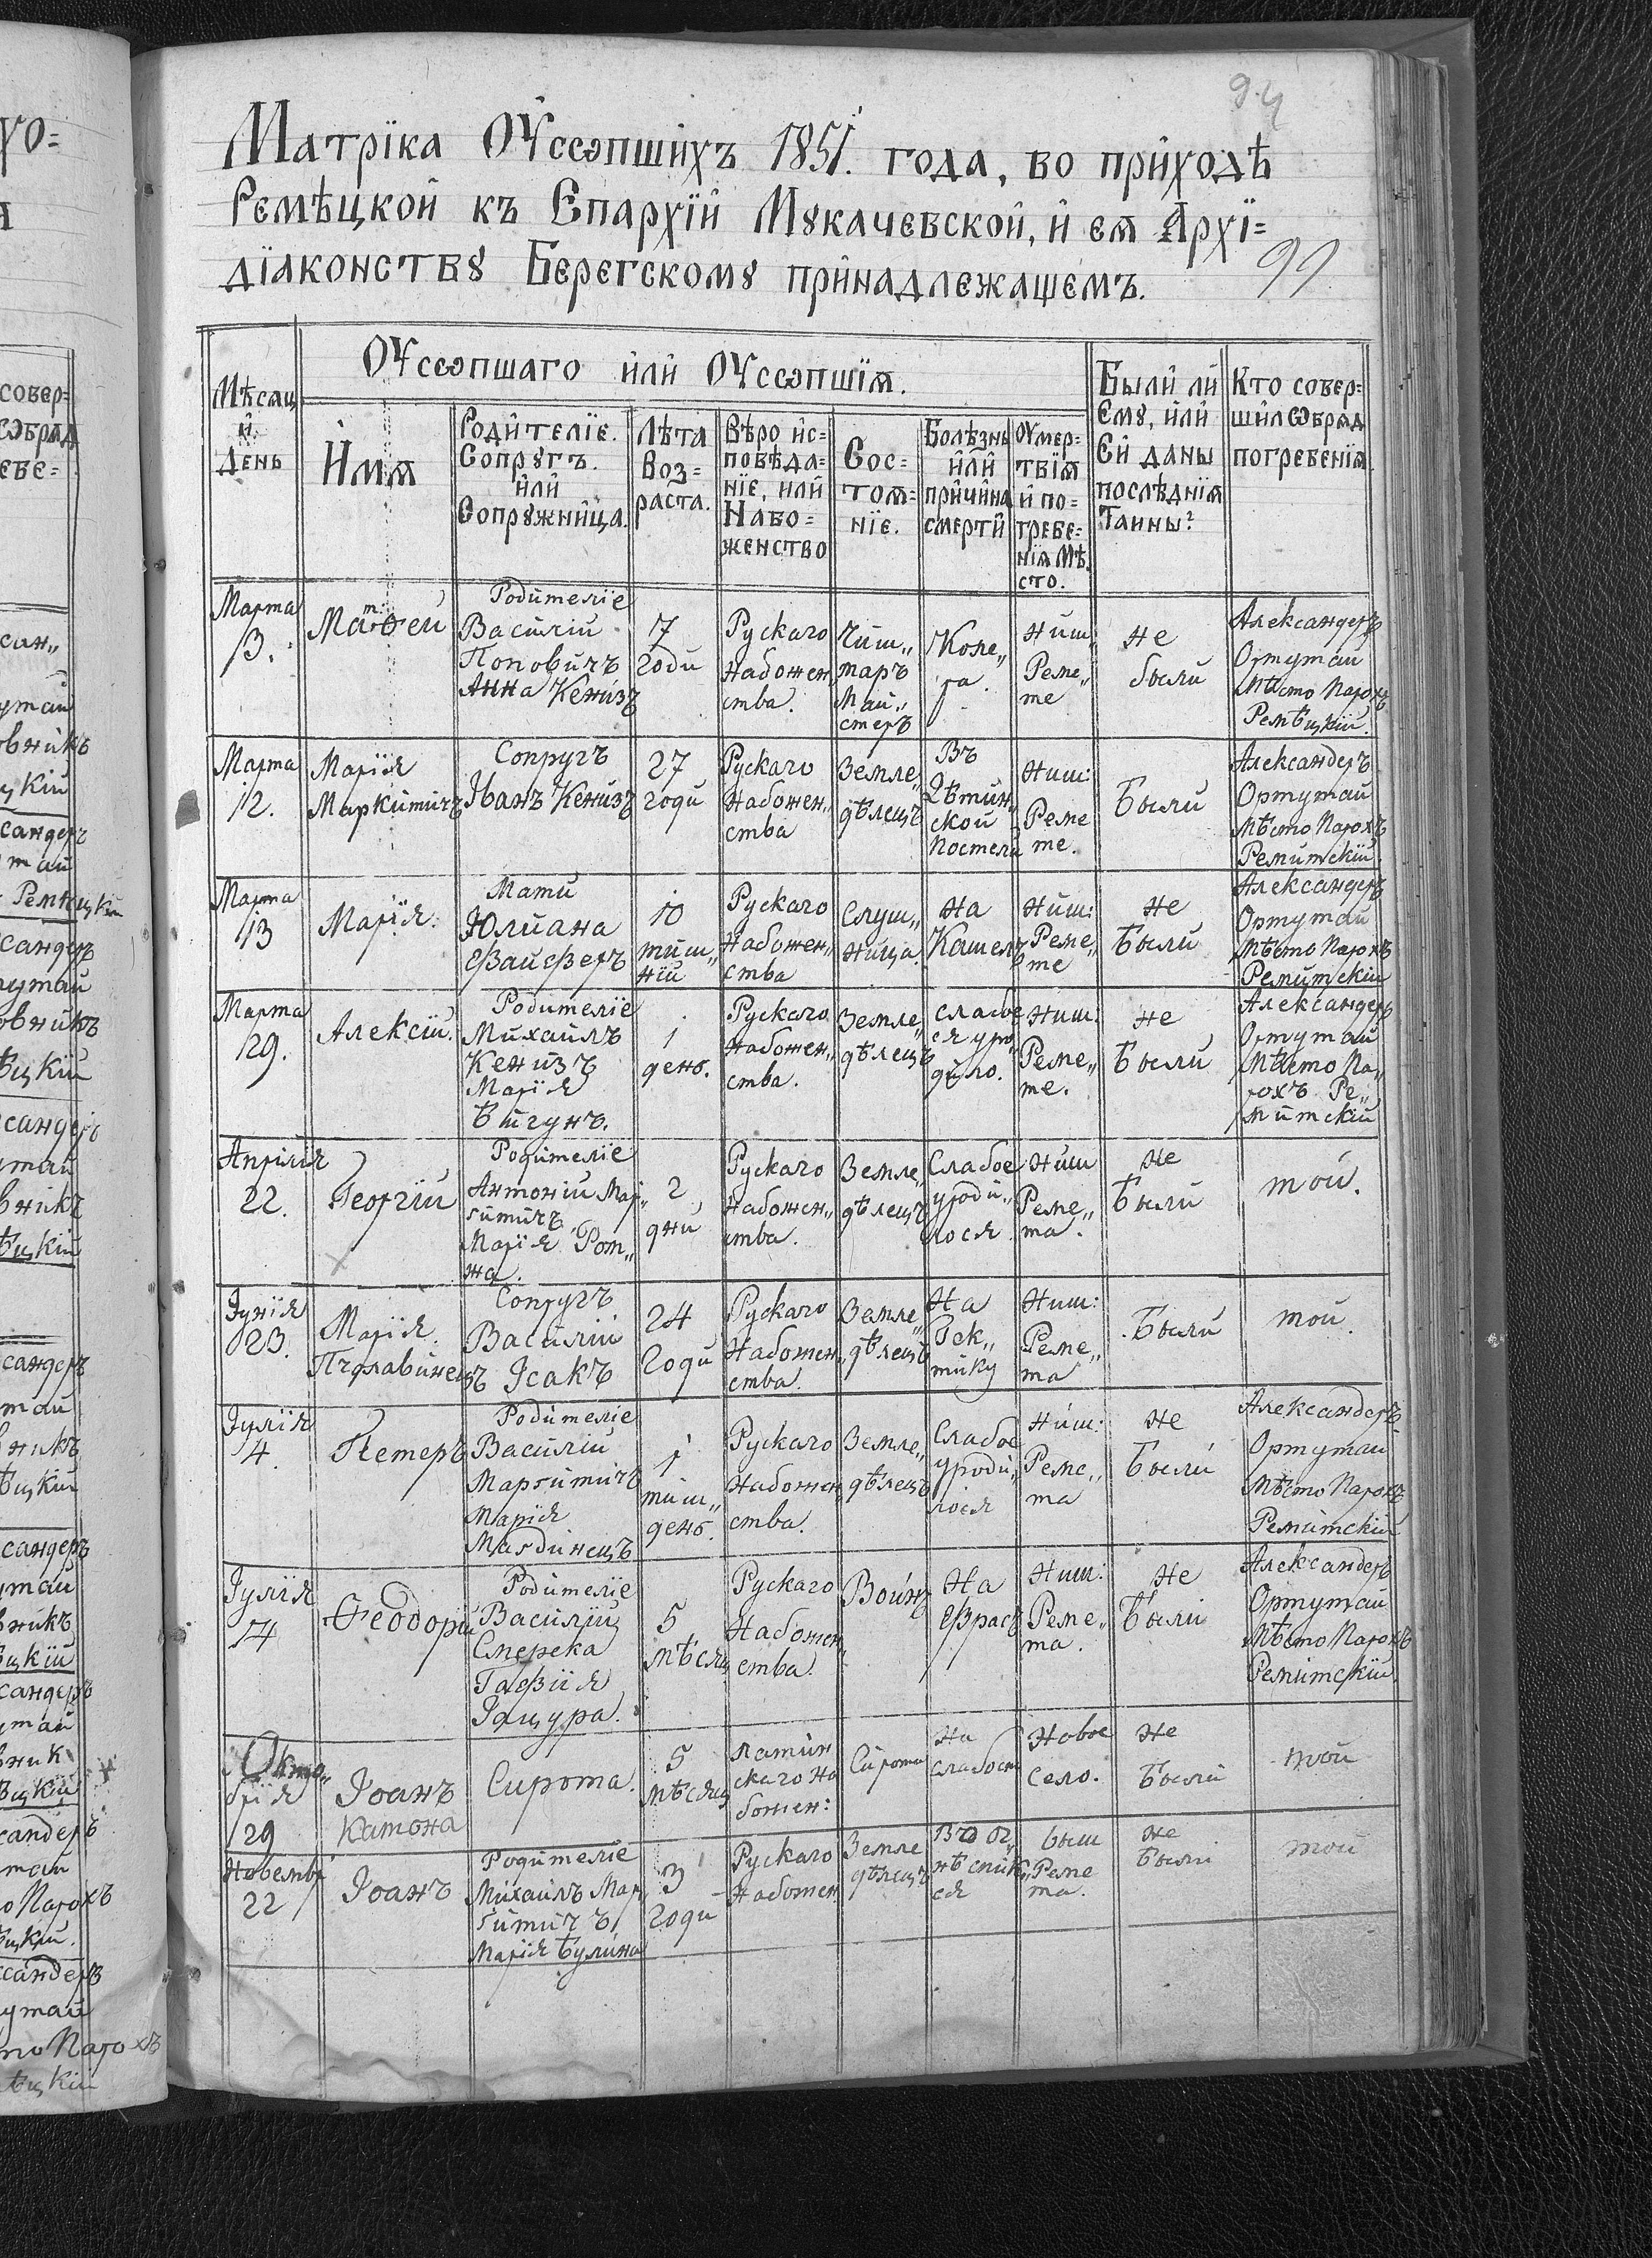 94
Матріка ОУссопшихъ 1851. года, во приходѣ
Ремѣцкой къ Єпархїй Мꙋкачевской, й еѧ Архї=
дїаконствꙋ Береґскомꙋ принадлежащемъ.
99
Мѣсац
й
День
ОУссопшаго йлй ОУссопшїѧ.
Ймѧ
Родителїе.
Сопрꙋгъ.
йлй
Сопрꙋжница.
Лѣта
Воз=
раста.
Вѣро йс=
повѣда=
нїе, йлй
Набо=
женство
Сос=
тоѧ=
нїе.
Болѣзнь
йлй
причина
смертй
Оумер=
твїѧ
й по=
гребе=
нїѧ Мѣ
сто.
Былй лй
Ємꙋ, йлй
Єй даны
послѣднїѧ
Таины?
Кто совер=
шилъ обрѧд
погребенїѧ.
Марта
3.
Матѳей
Родителїе
Василій
Поповичъ
Анна Кенизъ
7
Годи
Рускаго
Набожен
ства.
Чиш„
маръ
Май„
стеръ
Холе„
ра.
Ниш:
Реме„
те
не
были
Александеръ
Ортутай
Мѣсто Парохъ
Ремѣцкїй.
Марта
12.
Марїя
Маркитичъ
Сопругъ
Іванъ Кенизъ
27
годи
Рускаго
Набожен„
ства
Земле„
дѣлецъ
Въ
Дѣтин„
ской
Постели
Ниш:
Реме
те.
Были
Александеръ
Ортутай
Мѣсто Парохъ
Ремитскїй.
Марта
13
Марїя.
Мати
Юлиана
Файферъ
10
тиж„
нїй
Рускаго
Набожен„
ства
Служ„
ница.
На
Кашель
Ниш:
Реме„
те
Не
Были
Александеръ
Ортутай
Мѣсто Парохъ
Ремитскїй
Марта
29.
Алексїй.
Родителїе
Михаилъ
Кенизъ
Марїя
Бигунъ.
1
день.
Рускаго
Набожен„
ства.
Земле„
дѣлецъ
слабое
ся уро„
дило.
Ниш:
Реме„
те.
не
Были
Александеръ
Ортутай
Мѣсто Па„
рохъ Ре„
митскїй
Апрілія
22.
Георгїй
Родителїе
Антоній Мар„
гитичъ
Марїя Рот„
жа.
2
дни
Рускаго
Набожен„
ства.
Земле„
дѣлецъ
Слабое
уроди„
лося.
Ниш
Реме„
та.
Не
Были
той.
Іунїя
23.
Марїя.
Пчолавинецъ
Сопругъ
Василій
Ісакъ
24
Годи
Рускаго
Набожен„
ства.
Земле„
дѣлецъ
На
Гек„
тику
Ниш:
Реме„
та
Были
той.
Іулїя
4.
Петеръ
Родителїе
Василій
Маргитичъ
Марїя
Магдинецъ
1
тиж„
день.
Рускаго
Набожен„
ства.
Земле„
дѣлецъ
Слабое
уроди„
лося
Ниш:
Реме„
та
не
Были
Александеръ
Ортутай
Мѣсто Парохъ
Ремитскїй
Іулїя
14
Ѳеодорій
Родителїе
Василїй
Смерека
Гафия
Іацура.
5
мѣсяц
Рускаго
Набожен„
ства.
Воинъ
На
Фрасъ
Ниш:
Реме„
та.
Не
Были
Александеръ
Ортутай
Мѣсто Парохъ
Ремитскїй
Окто„
брїя
29
Іоанъ
Катона
Сирота.
5
мѣсяц
латин
скаго На
божен:
Сирота
На
слабость
Новое
Село.
Не
Были
той
Новембр
22
Іоанъ
Родителїе
Михаилъ Мар
гитичъ
Марїя Булина
3
Годи
Рускаго
Набожен
Земле
дѣлецъ
ся
Выш
Реме
та.
Не
Были
той